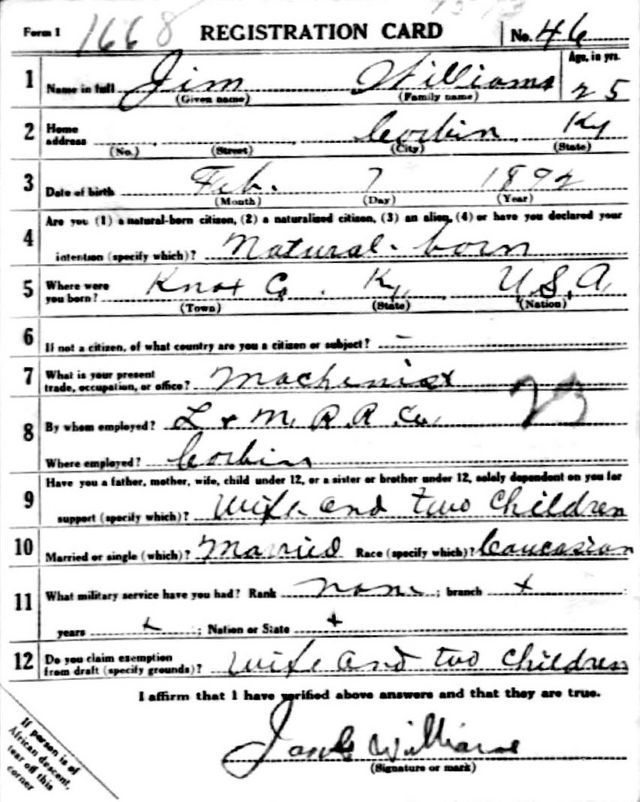 Form 1 1668 REGISTRATION CARD No. 46
1 Name in full Jim Williams Age, in yrs. 25
(Given name) (Family name)
2 Home address Corbin Ky
(No.) (Street) (City) (State)
3 Date of birth Feb. 7 1892
(Month) (Day) (Year)
4 Are you (1) a natural-born citizen, (2) a naturalized citizen, (3) an alien, (4) or have you declared your
intention (specify which)? Natural-born
5 Where were you born? Knox Co. Ky. U.S.A.
(Town) (State) (Nation)
6 If not a citizen, of what country are you a citizen or subject? -
7 What is your present trade, occupation, or office? Machenist
8 By whom employed? L & N. R. R. Co.
Where employed? Corbin
9 Have you a father, mother, wife, child under 12, or a sister or brother under 12, solely dependent on you for
support (specify which)? Wife and two children
10 Married or single (which)? Married Race (specify which)? Caucasian
11 What military service have you had? Rank none ; branch x
years x ; Nation or State x
12 Do you claim exemption from draft (specify grounds)? Wife and two children
I affirm that I have verified above answers and that they are true.
Williams
(Signature or mark)
If person is of
African descent,
tear off this
corner